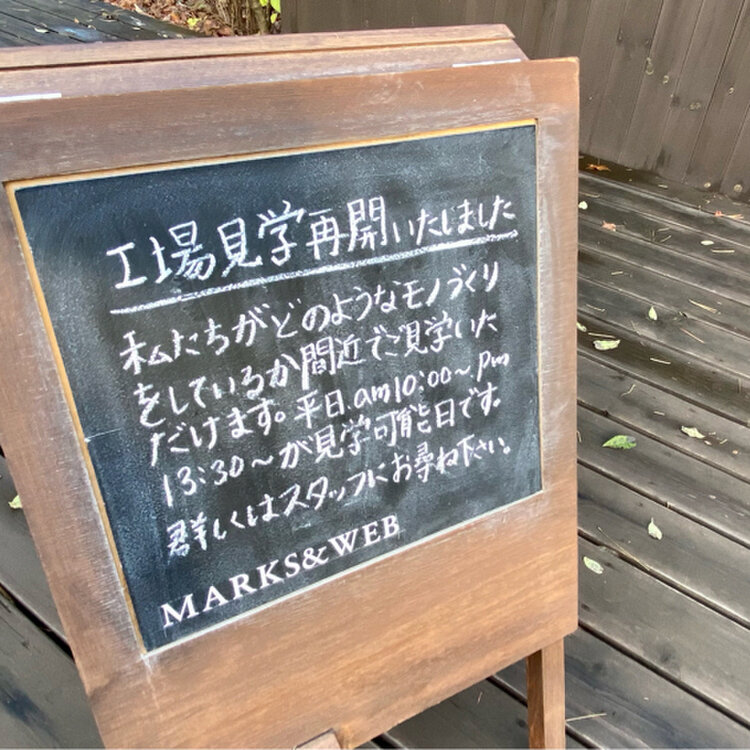 工場見学再開いたしました
私たちがどのようなモノづくり
をしているか間近でご見学いた
だけます。平日.am10:00〜.pm
13:30〜が見学可能日です。
群しくはスタッフにお尋ね下さい。
MARKS&WEB